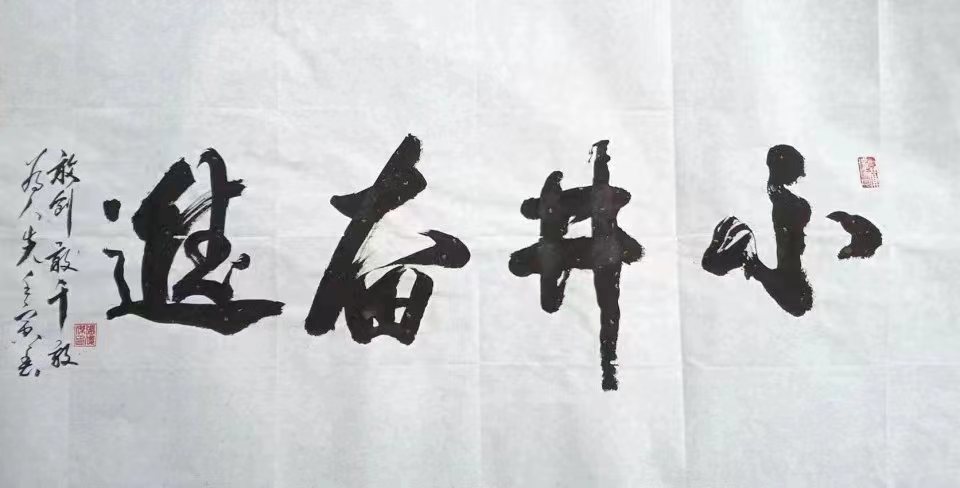 小井奋進
敢创敢干敢
为人先